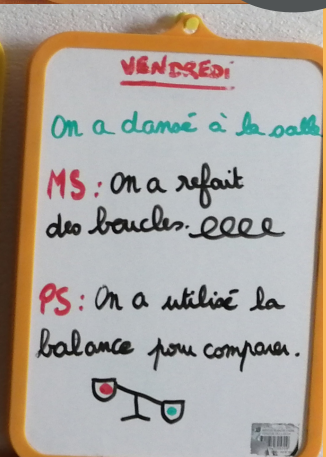 VENDREDi
On a dansé à la salle
MS: On a refait
des boucles.
PS: On a utilisé la
balance pour comparer.